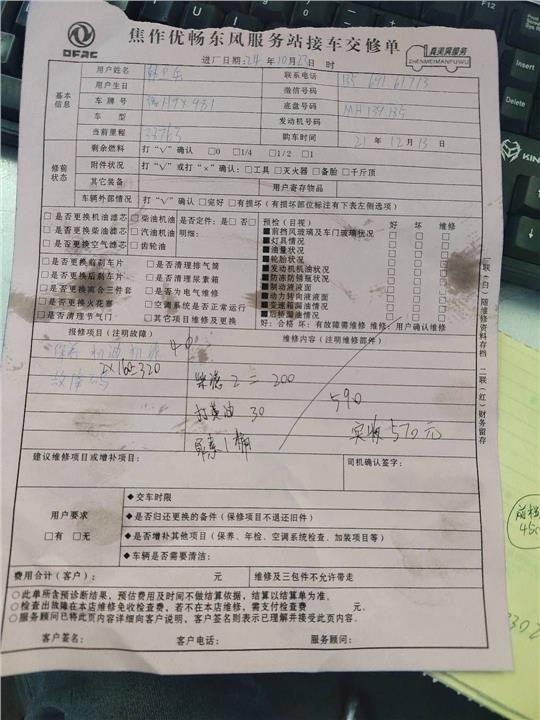 DFAC
焦作优畅东风服务站接车交修单
真美满服务
ZHENMEIMANFUWU
进厂日期:24 年 10 月 23 日 时
基本信息
用户姓名
联系电话
用户生日
微信号码
车 牌 号
底盘号码 MH139135
车 型
发动机号码
当前里程 33763
购车时间 21 年 12 月 13 日
修前状态
剩余燃料 打“√”确认 □0 □1/4 □1/2 □1
附件状况 打“√”或“×”确认:□工具 □灭火器 □备胎 □千斤顶
其它装备 用户寄存物品
车辆外部情况 打“√”确认 □完好 □有损坏(有损坏部位标注有下表左侧选项)
□是否更换机油滤芯 □柴油机油 是否定件:是□ 否□
□是否更换柴油滤芯 □汽油机油 明细:
□是否更换空气滤芯 □齿轮油
□是否更换前刹车片 □是否清理排气筒
□是否更换后刹车片 □是否清理尿素箱
□是否更换离合三件套 □是否为电气维修
□是否更换火花塞 □空调系统是否正常运行
□是否清理节气门 □其它项目维修及更换
预检(目视) 好 坏 维修
■前挡风玻璃及车门玻璃状况 □ □ □
■灯具情况 □ □ □
■油量状况 □ □ □
■轮胎状况 □ □ □
■发动机机油状况 □ □ □
■防冻防锈瓶状况 □ □ □
■制动液液面 □ □ □
■动力转向液液面 □ □ □
■变速箱漏油情况 □ □ □
■后桥漏油情况 □ □ □
好:合格 坏:有故障需维修 维修:用户确认维修
报修项目(注明故障)
维修内容(注明维修部件)
保养 机油机滤
2X160=320
故障码
柴滤 2 = 200
打黄油 30
590
实收570元
建议维修项目或增补项目:
司机确认签字:
用户要求
□有 □无
◆交车时限
◆是否归还更换的备件(保修项目不退还旧件)
◆是否增补其他项目(保养、年检、空调系统检查、加装项目等)
◆车辆是否需要清洁:
费用合计(客户): 元
维修及三包件不允许带走
○此单所含预诊断结果,预估费用及时间不做结算依据,结算以结算单为准。
○检查出故障在本店维修免收检查费,若不在本店维修,需支付检查费 元。
○服务顾问已将此页内容详细向客户说明,客户签名则表示已理解并接受此页内容。
客户签名: 客户电话: 服务顾问:
一联(白)随维修资料存档 二联(红)财务留存